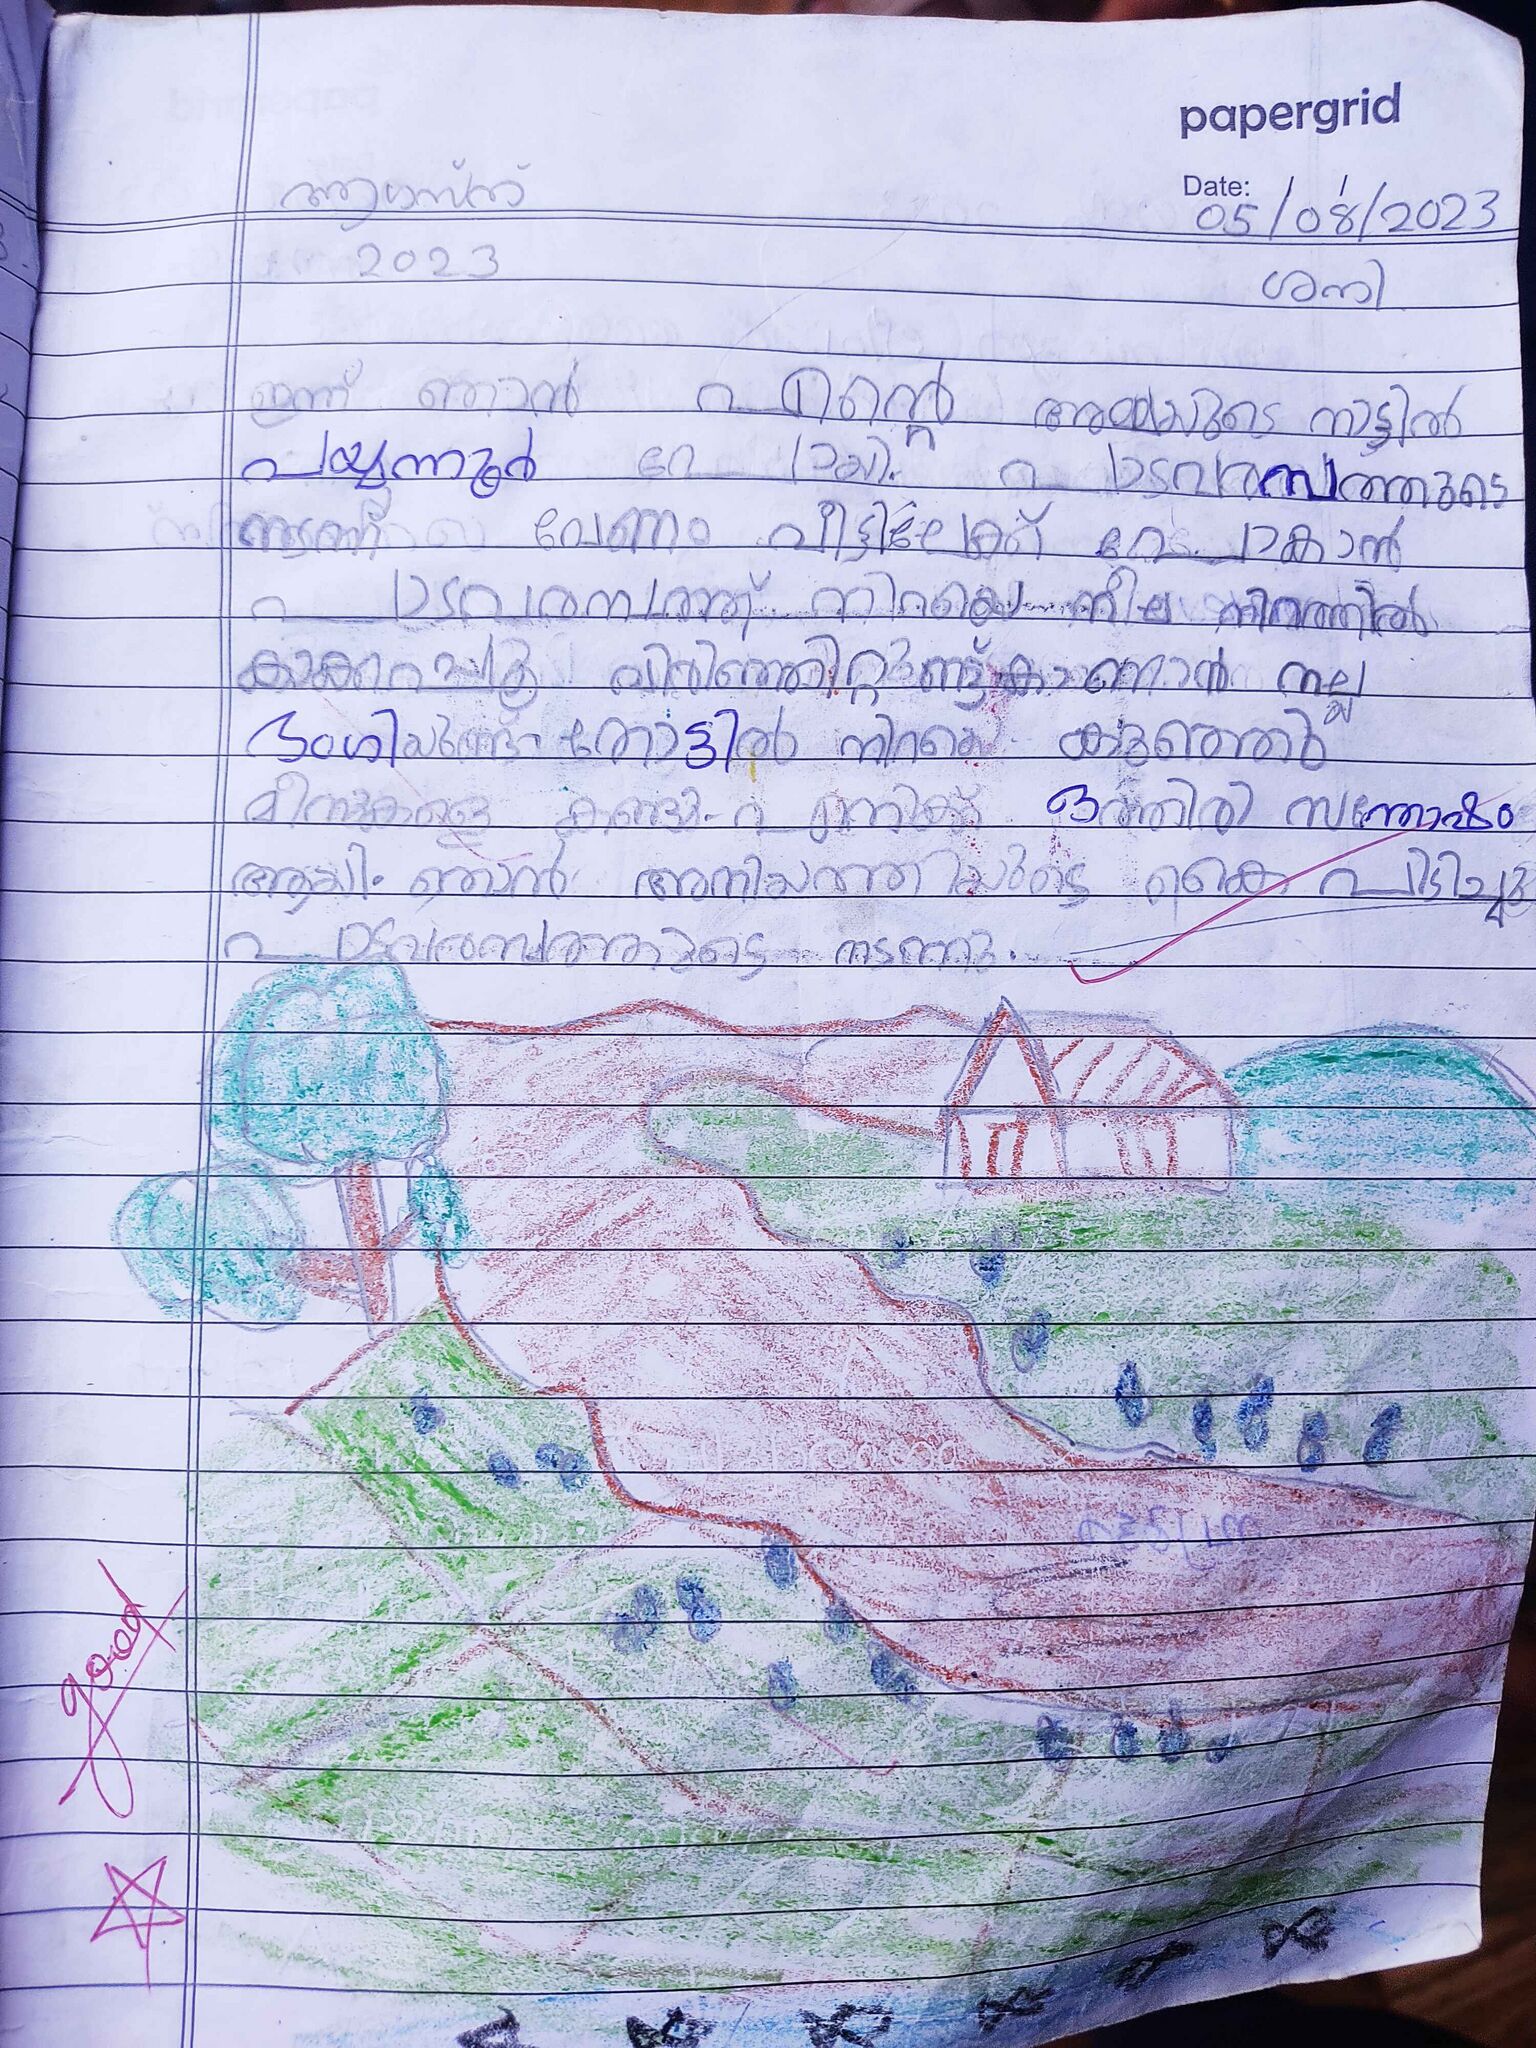 papergrid
Date: 05/08/2023
ആഗസ്ത്
2023
ശനി
ഇന്ന് ഞാൻ എന്റെ അമ്മയുടെ നാട്ടിൽ
പയ്യന്നൂർ പോയി. പാടവരമ്പത്തുടെ
നടന്ന് വേണം വീട്ടിലേക്ക് പോകാൻ
പാടവരമ്പത്ത് നിറയെ നീല നിറത്തിൽ
കാക്കപൂ വിരിഞ്ഞിറ്റുണ്ട് കാണാൻ നല്ല
ഭംഗിയുണ്ട് തോട്ടിൽ നിറയെ കുഞ്ഞൻ
മീനുകളെ കണ്ടു എനിക്ക് ഒത്തിരി സന്തോഷം
ആയി. ഞാൻ അനിയത്തിയുടെ കൈ പിടിച്ചു
പാടവരമ്പത്തുടെ നടന്നു.
good